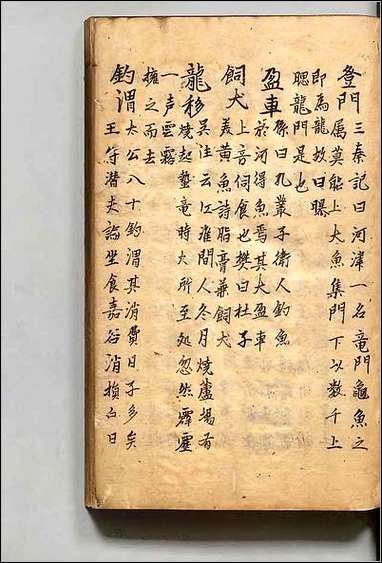 登門 三秦記曰河津一名竜門龜魚之
属莫能上大魚集門下以数千上
即為龍故曰曝
腮龍門是也
盈車 孫曰孔叢子衛人釣魚
於河得魚焉其大盈車
飼犬 上音伺食也樊曰杜子
美黄魚詩脂膏兼飼犬
龍移 吴注云江淮間人冬月燒蘆場有
燒起蟄竜時火所至処忽然霹靂
一声雲霧
擁之而去
釣渭 太公八十釣渭其消費日子多矣
王符潜夫論坐食嘉谷消損白日